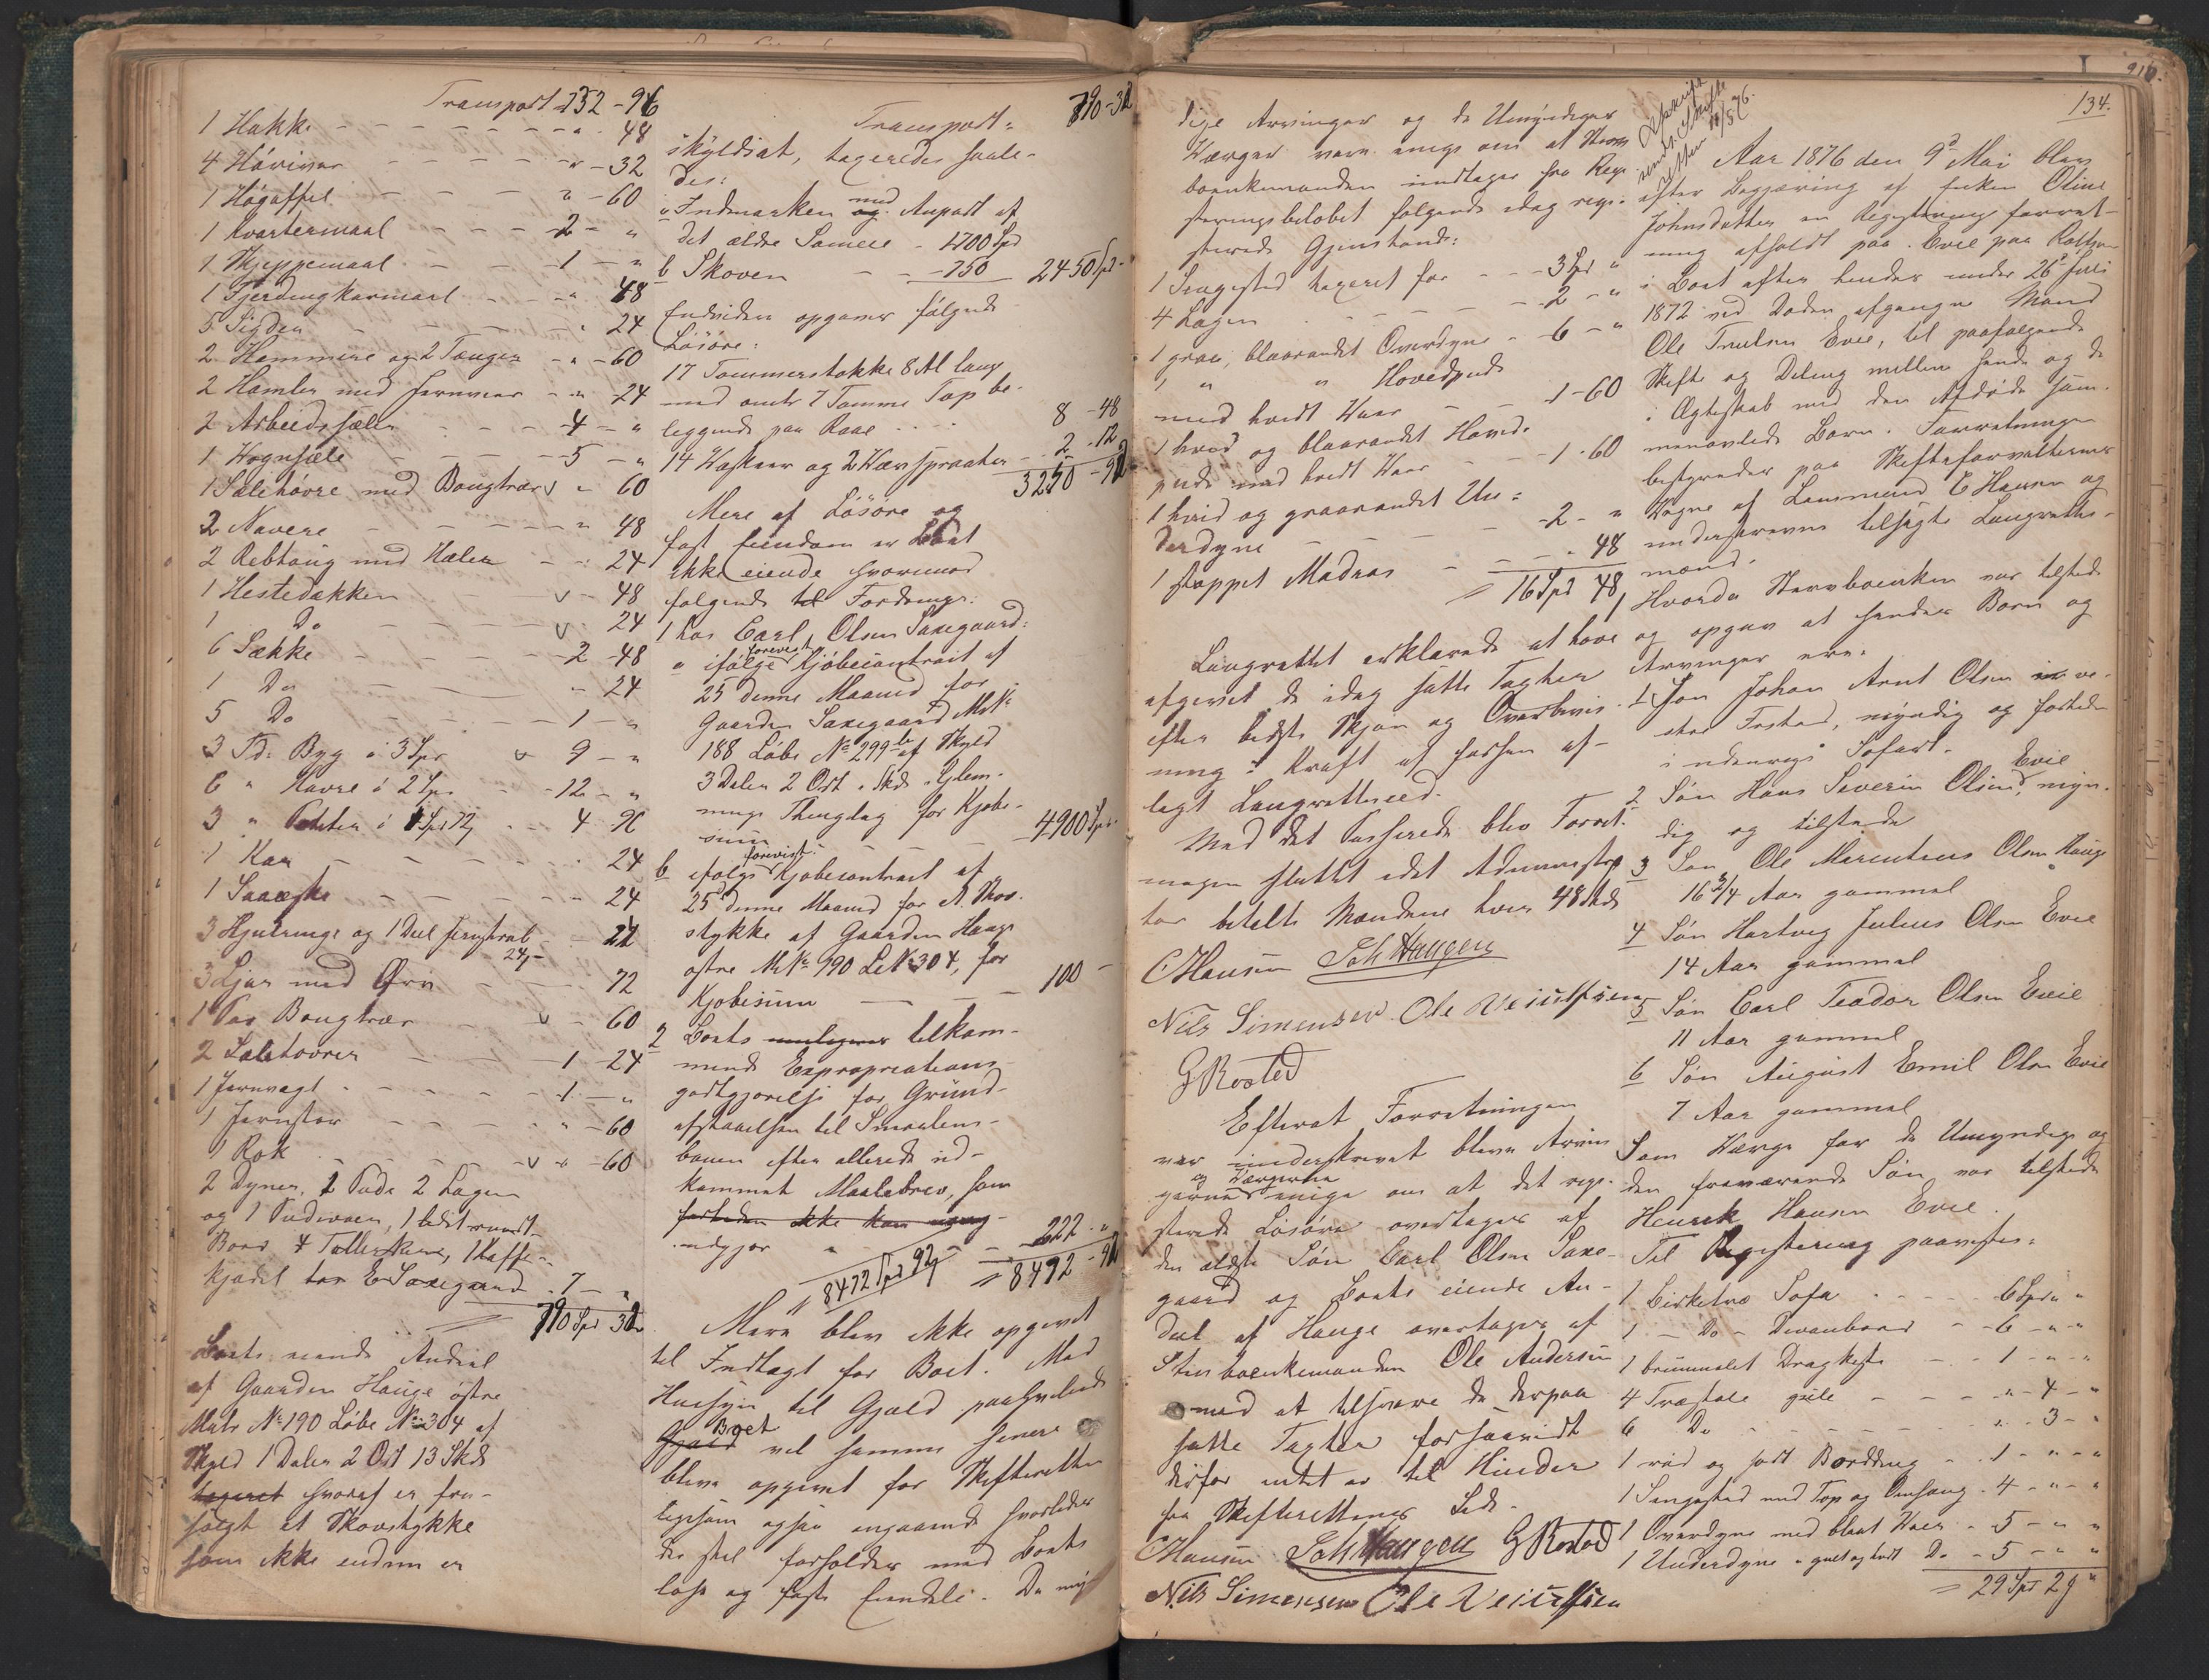 Transport 752 - 96
1 Hakke - - - " - 48
4 Hårivar - - - " - 32
1 Høgaffel - - - " - 60
1 Kvartermaal - - - 2 - "
1 Skjeppemaal - - - 1 - "
1 Fjerdingkarmaal - - - " 48
5 Sigder - - - " 24
2 Hammere og 2 Tænger - " - 60
2 Hamler med Jernvær - " 24
2 Arbeidssæler - - - 4 - "
1 Vognsæle - - - 5 - "
1 Sælehövre med Bougtræer " 60
2 Navere - - - " 48
2 Rebtoug med Hæler - " 24
1 Hestedækken v - 48
1 Do v 24
6 Sække - - - 2 - 48
1 Do - - - " 24
5 Do - - - 1 - "
3 Td: Byg à 3 Spd v 9 - "
6 " Havre à 2 Spd - 12 - "
3 " Poteter à 1 Spd 72 - 4 96
1 Kar - - - 24
1 - - - " 24
3 Hjulringe og 1 Deel 24
24
3 Ljaer med Orv - - - 72
1 Par Bougtræer v - 60
2 Sælehovrer - - - 1 - 24
1 Jernvægt - - - 1 - "
1 Jernstør - - - " - 60
1 Rok - - - v " - 60
2 Dyner, 2 Puder 2 Lagen
og 1 Pudevaer, 1 lidet rundt
Bord 4 Tallerkene, 1 Kaffe-
kjedel hos E Saxegaard - 7 - "
790 Spd 32
Boets eiende Andeel
af Gaarden Hauge östre
Matr No 190 Löbe No 304 af
Skyld 1 Daler 2 Ort 13 Skl
taxeret hvoraf er fra-
solgt et Skovstykke
som ikke endnu er
Transport: 790 - 32
skyldsat, taxeredes saale-
des:
a Indmarken med og Anpart af
det ældre Sameie - 1700 Spd
b Skoven - - - 750 2450 Spd -
Endvidere opgaves følgende
Lösöre:
17 Tømmerstokke 8 Al lang
med omtr 7 Tomme Top be-
leggende paa Raae - - - 8 - 48
14 og 2 - 2 - 12
3250 - 92
Mere af Lösöre og
fast Eiendom er Boet
ikke eiende hvorimod
følgende til Fordringe:
1 hos Carl Olsen Saxegaard:
a ifølge forevist Kjöbecontract af
25 denne Maaned for
Gaarden Saxegaard MNo
188 Löbe No 299 b af Skyld
3 Daler 2 Ort " Skl. i Glem-
minge Thinglag for Kjøbe-
sum - - - 4900 Spd -
b ifølge forevist Kjøbecontract af
25 denne Maaned for et Skov-
stykke af Gaarden Hauge
østre MNo 190 LNo 304, for
Kjøbesum - - - 100 -
2 Boets tilkom-
mende Expropriations-
godtgjørelse for Grund-
afstaaelsen til Smaalens-
banen efter allerede ud-
kommet Maalebrev, som
forheden ikke kan
udgjør - - - 222 - "
8472 Spd 92 = 8472 - 92
Mere blev ikke opgivet
til Indtægt for Boet. Med
Hensyn til Gjæld paahvilende
Gjæld Boet vil samme senere
blive opgivet for Skifteretten
ligesom ogsaa angaaende hvorledes
der skal forholdes med Boets
løse og faste Eiendele. De myn
dige Arvinger og de Umyndiges
Værger vare enige om at Sterv-
boenkemanden indtager fra Regi-
streringsbeløbet følgende idag regi-
strerede Gjenstande:
1 Sengested taxeret for - - - 3 Spd "
4 Lagen - - - 2 - "
1 graa, blaarandet Overdyne - 6 - "
1 " " Hovedpude
med hvidt Vaar - - - 1 - 60
1 hvid og blaarandet Hoved-
pude med hvidt Vaar - - - 1 - 60
1 hvid og graarandet Un-
derdyne - - - 2 - "
1 stoppet Madras - - - " 48
= 16 Spd 48
Laugrettet erklærede at have
afgivet de idag satte Taxter
efter bedste Skjøn og Overbevis-
ning i Kraft af forhen af-
lagt Laugrettesed.
Med det Passerede blev Forret-
ningen sluttet idet Administra
tor betalte Mændene hver 48 Skl
C Hansen Joh Haugen
Nils Simensen Ole
G Rosted
Efterat Forretningen
var underskrevet bleve Arvin
gerne og Værgerne enige om at det regi-
strerede Lösöre overtages af
den ældste Søn Carl Olsen Saxe-
gaard og Boets eiende An-
deel af Hauge overtages af
Stervboenkemanden Ole Andersen
med at tilsvare de derpaa
satte Taxter forsaavidt
derfor intet er til Hinder
fra Skifterettens Side.
C Hansen Joh Haugen G Rosted
Nils Simensen Ole
910.
134.
Udskrift
sendt Skifte
retten 10/5 76.
Aar 1876 den 9de Mai blev
efter Begjæring af Enken Oline
Johnsdatter en Registrerings forret-
ning afholdt paa Evie paa
i Boet efter hendes under 26de Juli
1872 ved Døden afgangne Mand
Ole Truelsen Evie, til paafølgende
Skifte og Deling mellem hende og de
i Ægteskab med den Afdøde sam-
menavlede Børn. Forretningen
bestyredes paa Skifteforvalterens
Vegne af Lensmand C Hansen og
underskrevne tilsagte Laugrettes-
mænd.
Hvorda Stervboenken var tilstede
og opgav at hendes Børn og
Arvinger ere:
1 Søn Johan Arnt Olsen ve-
stad, myndig og farende
i udenrigs Søfart.
2 Søn Hans Severin Olsen Evie, myn-
dig og tilstede
3 Søn Ole Marentius Olsen Hauge
16 3/4 Aar gammel
4 Søn Hartvig Julius Olsen Evie
14 Aar gammel
5 Søn Carl Teodor Olsen Evie
11 Aar gammel
6 Søn August Emil Olsen Evie
7 Aar gammel
Som Værge for de Umyndige og
den fraværende Søn var tilstede
Henrik Hansen Evie.
Til Registrering paavistes:
1 Birketræ Sofa - - - 6 Spd " "
1 - Do - Divanbord - - 6 - " - "
1 brunmalet Dragkiste - - 1 - " - "
4 Træstole gule - - - " - 4 - "
6 Do - - - " - 3 - "
1 rød og sort Borddug - - 1 - " - "
1 Sengested med Top og Omhæng - 4 - " - "
1 Overdyne med blaat Vaer - 5 - " - "
1 Underdyne " gult og hvidt Do - 5 - " - "
= 29 Spd 2 "